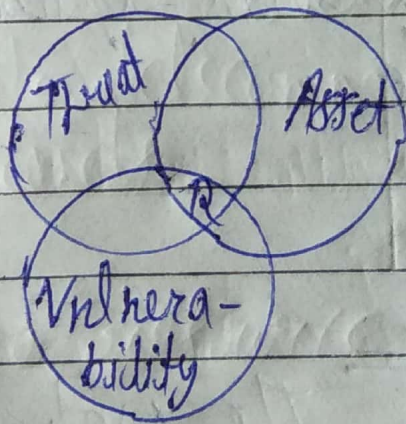 Threat
Asset
R
Vulnera-
bility